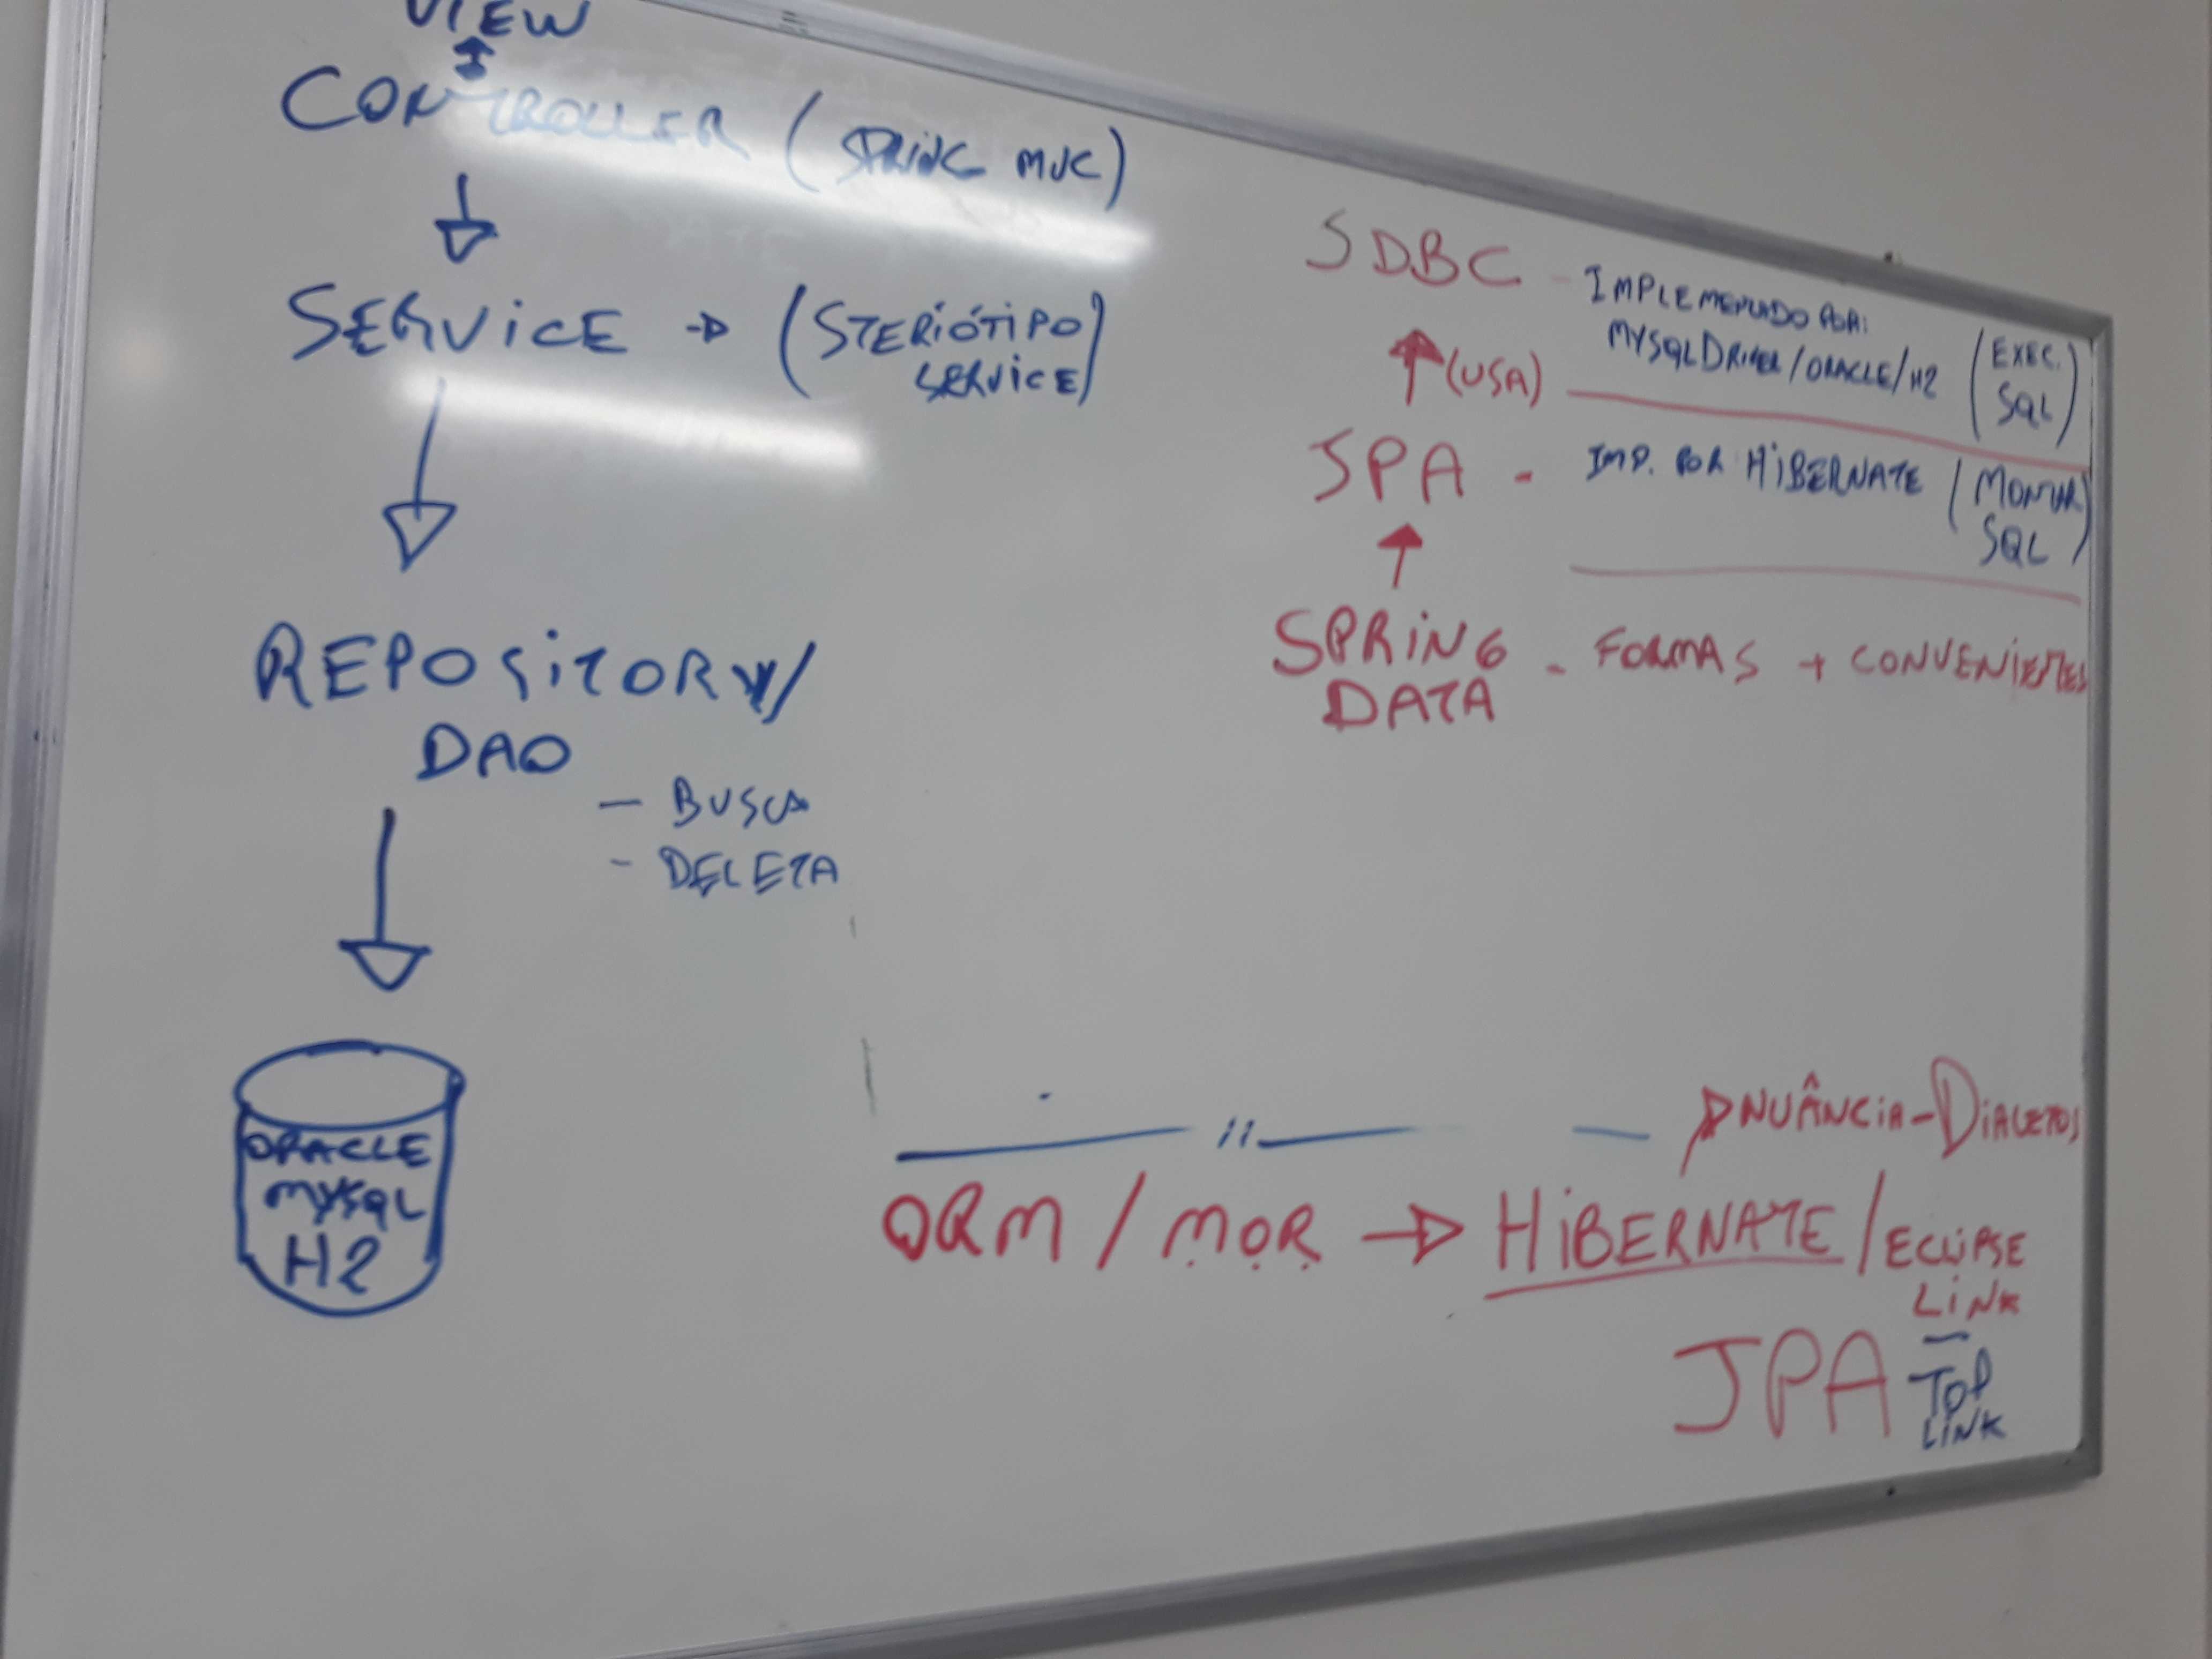 VIEW
CONTROLLER (SPRING MVC)
SERVICE (STERIÓTIPO
SERVICE)
REPOSITORY/
DAO
- BUSCA
- DELETA
ORACLE
MYSQL
H2
JDBC - IMPLEMENTADO POR:
MYSQL DRIVER/ORACLE/H2 (EXEC.
SQL)
(USA)
JPA - IMP. POR HIBERNATE (MONTAR
SQL)
SPRING
DATA - FORMAS + CONVENIENTES
NUÂNCIA - DIALETOS
ORM / M.O.R. → HIBERNATE / ECLIPSE
LINK
JPA
TOP
LINK